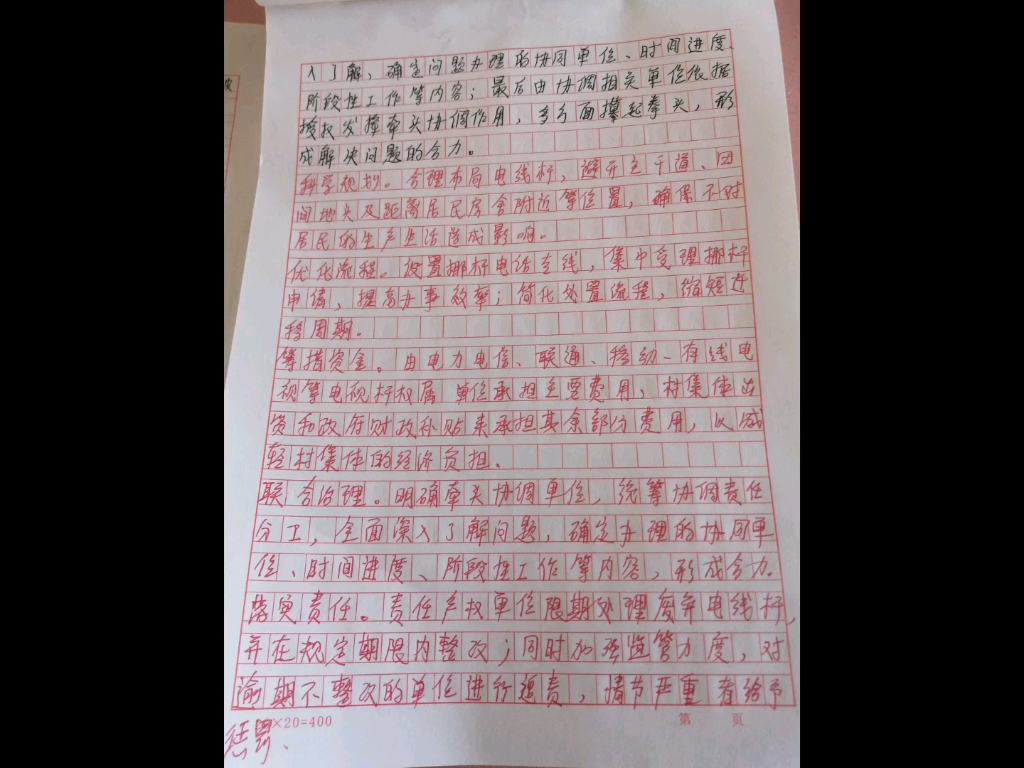 入了解,确定问题办理的协同单位、时间进度、
阶段性工作等内容;最后由协调指定单位依据
授权发挥牵头协调作用,多方面攥起拳头,形
成解决问题的合力。
科学规划。合理布局电线杆,避开主干道、田
间地头及距离居民房舍附近等位置,确保不对
居民的生产生活造成影响。
优化流程。设置挪杆电话专线,集中受理挪杆
申请,提高办事效率;简化处置流程,缩短迁
移周期。
筹措资金。由电力电信、联通、移动、有线电
视等电视杆权属单位承担主要费用,村集体出
资和政府财政补贴来承担其余部分费用,以减
轻村集体的经济负担。
联合治理。明确牵头协调单位,统筹协调责任
分工,全面深入了解问题,确定办理的协同单
位、时间进度、阶段性工作等内容,形成合力。
落实责任。责任产权单位限期处理废弃电线杆,
并在规定期限内整改;同时加强监管力度,对
逾期不整改的单位进行追责,情节严重者给予
惩罚、
×20=400
第 页